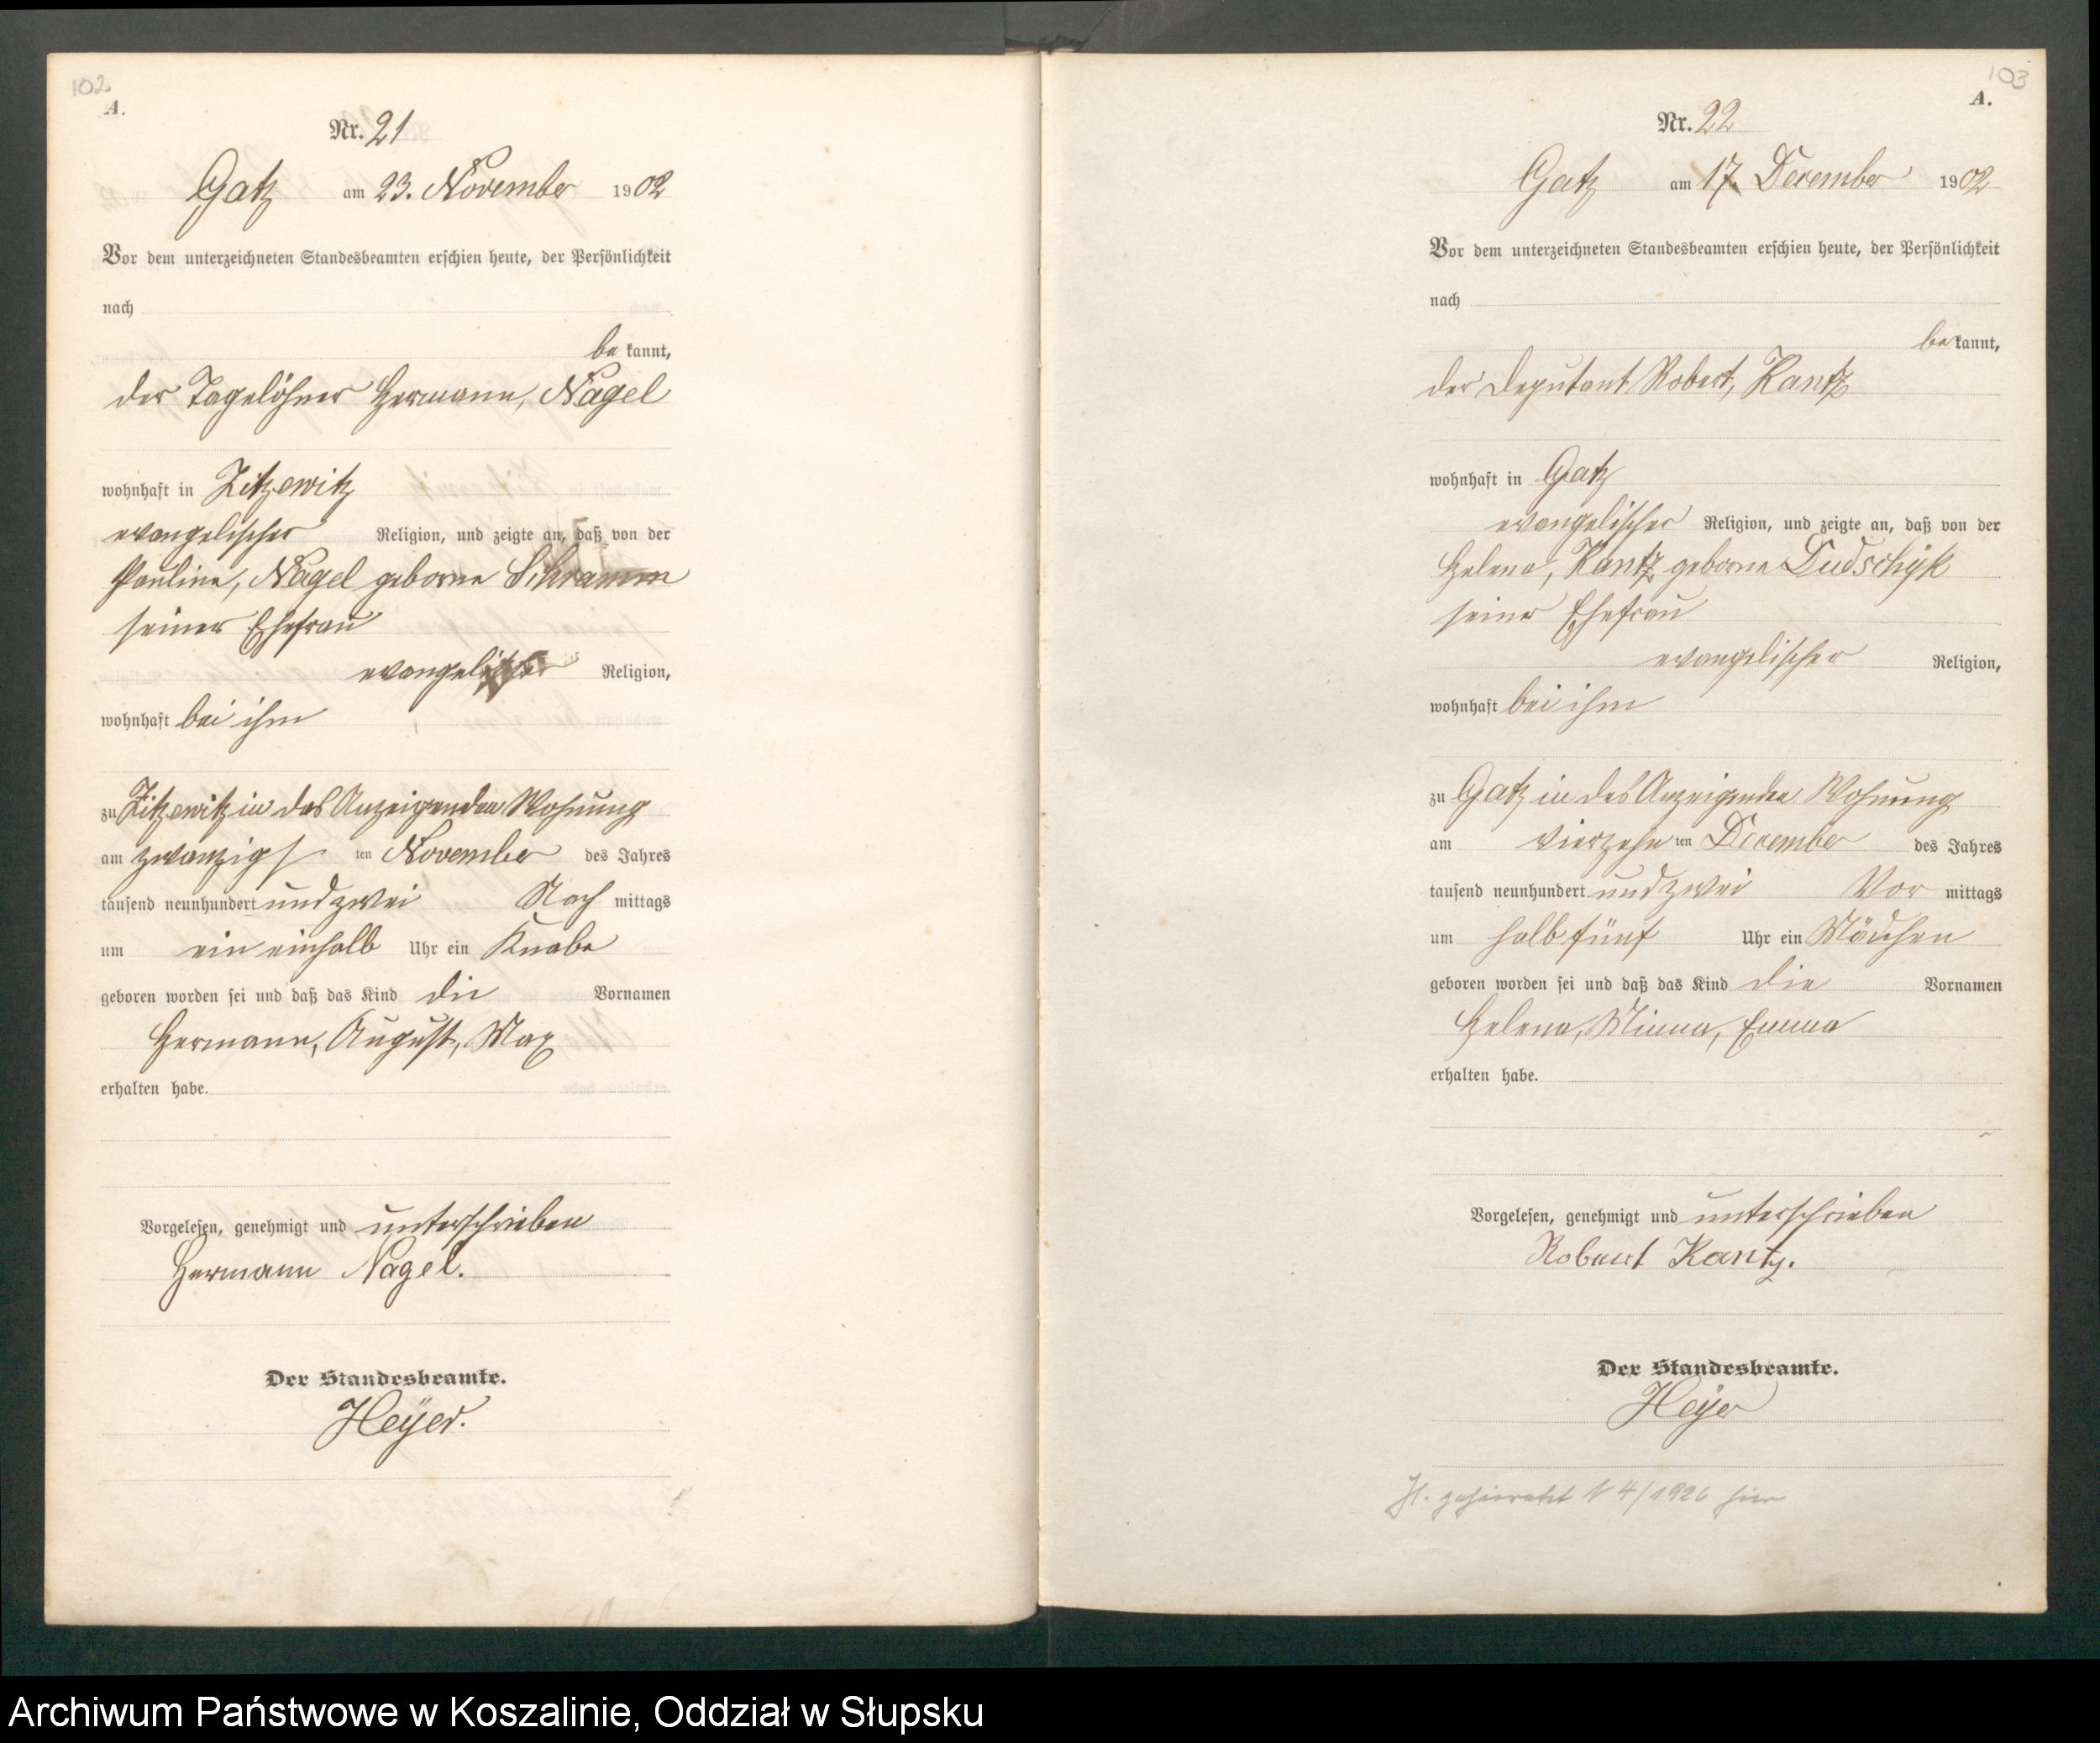 102
A.
Nr. 21
Gatz am 23. November 1902
Vor dem unterzeichneten Standesbeamten erschien heute, der Persönlichkeit
nach
be kannt,
der Tagelöhner Hermann, Nagel
wohnhaft in Zitzewitz
evangelischer Religion, und zeigte an, daß von der
Pauline, Nagel geborne Schramm
seiner Ehefrau
evangelischer Religion,
wohnhaft bei ihm
zu Zitzewitz in des Anzeigenden Wohnung
am zwanzigs ten November des Jahres
tausend neunhundert und zwei Nach mittags
um ein einhalb Uhr ein Knabe
geboren worden sei und daß das Kind die Vornamen
Hermann, August, Max
erhalten habe.
Vorgelesen, genehmigt und unterschrieben
Hermann Nagel.
Der Standesbeamte.
Heÿer.
103
A.
Nr. 22
Gatz am 17. December 1902
Vor dem unterzeichneten Standesbeamten erschien heute, der Persönlichkeit
nach
be kannt,
der Deputant Robert, Kantz
wohnhaft in Gatz
evangelischer Religion, und zeigte an, daß von der
Helene, Kantz geborne Dudschÿk
seiner Ehefrau
evangelischer Religion,
wohnhaft bei ihm
zu Gatz in des Anzeigenden Wohnung
am vierzehn ten December des Jahres
tausend neunhundert und zwei Vor mittags
um halb fünf Uhr ein Mädchen
geboren worden sei und daß das Kind die Vornamen
Helene, Minna, Emma
erhalten habe.
Vorgelesen, genehmigt und unterschrieben
Robert Kantz.
Der Standesbeamte.
Heÿer
H. geheiratet N 4/1926 hier
Archiwum Państwowe w Koszalinie, Oddział w Słupsku